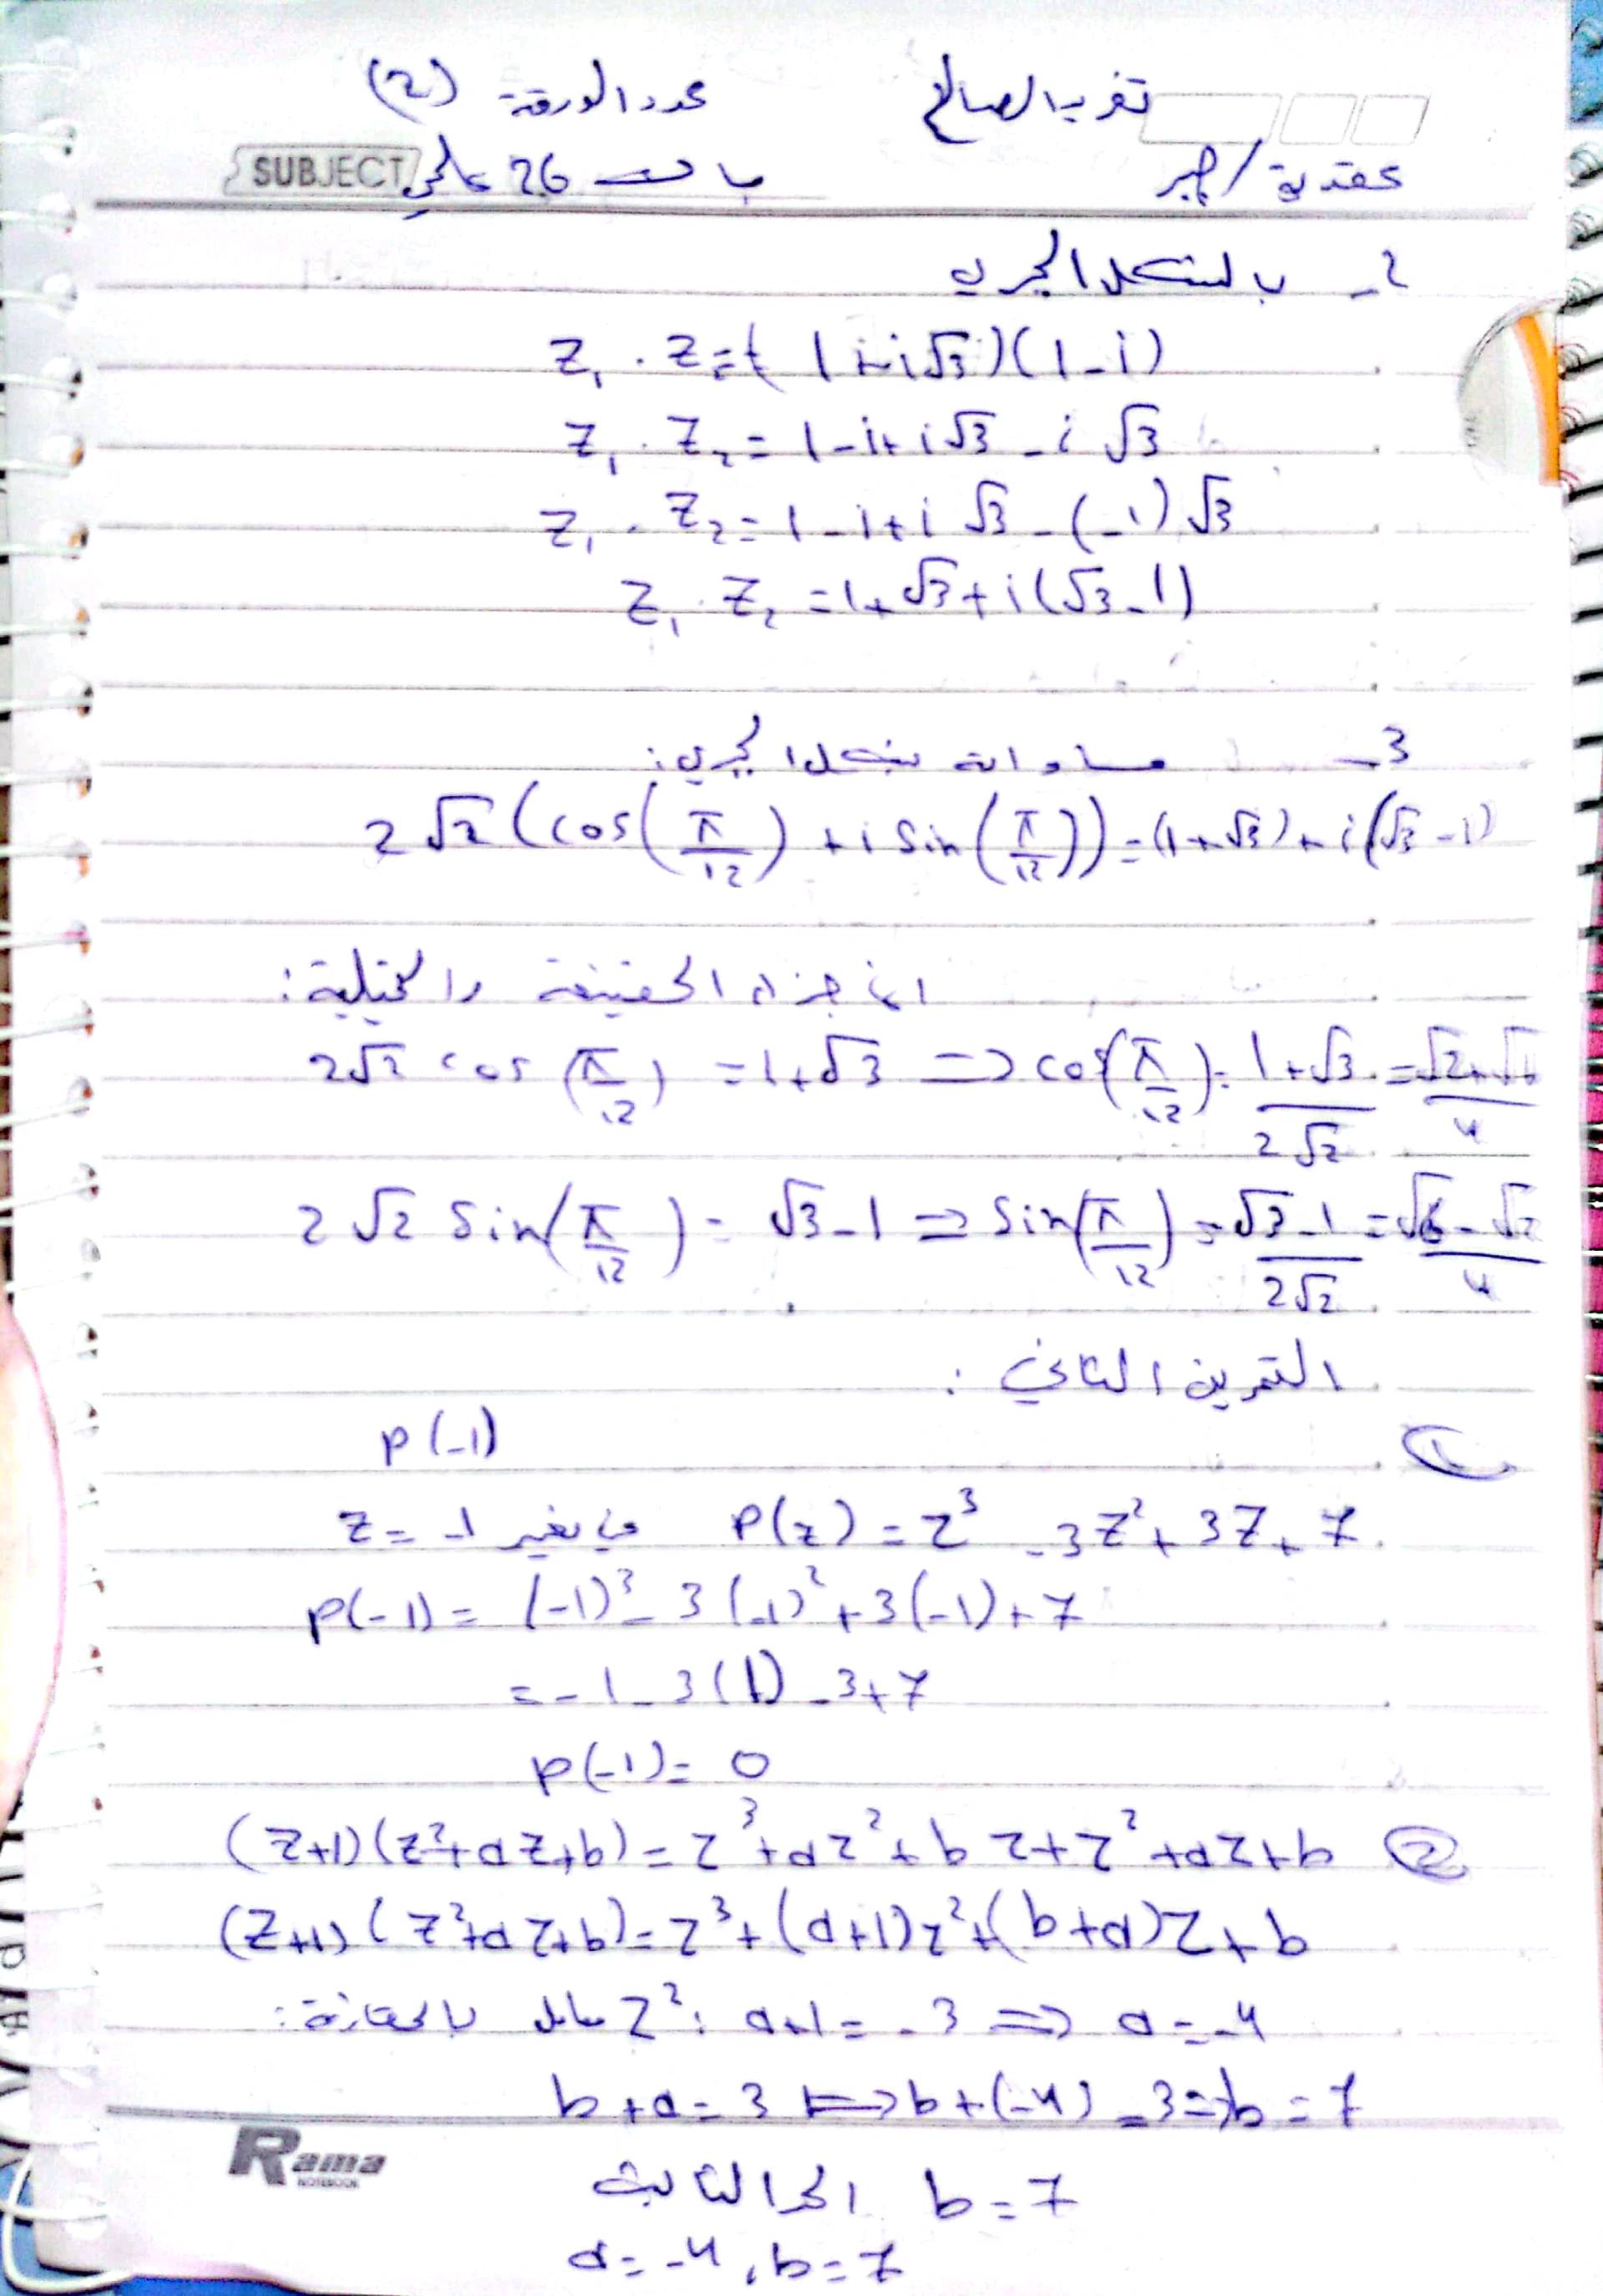 تغريد الصالح عدد الورقة (2)
عقدية / جبر
SUBJECT
2- بالشكل الجبري
Z₁ . Z₂ = (1 + i√3)(1 - i)
Z₁ . Z₂ = 1 - i + i√3 - i √3
Z₁ . Z₂ = 1 - i + i √3 - (-1) √3
Z₁ . Z₂ = 1 + √3 + i(√3 - 1)
3-
2√2 (cos(π/12) + i sin(π/12)) = (1 + √3) + i(√3 - 1)
الأجزاء الحقيقة والتخيلية:
2√2 cos(π/12) = 1 + √3 => cos(π/12) = 1 + √3 / 2√2 = √2 + √6 / 4
2√2 sin(π/12) = √3 - 1 => sin(π/12) = √3 - 1 / 2√2 = √6 - √2 / 4
التمرين الثاني:
① P(-1)
P(z) = z³ - 3z² + 3z + 7 z = -1
P(-1) = (-1)³ - 3(-1)² + 3(-1) + 7
= -1 - 3(1) - 3 + 7
P(-1) = 0
② (z+1)(z² + az + b) = z³ + az² + bz + z² + az + b
(z+1)(z² + az + b) = z³ + (a+1)z² + (b+a)z + b
بالمقارنة: z² : a+1 = -3 => a = -4
b + a = 3 => b + (-4) = 3 => b = 7
b = 7 الحد الثالث
a = -4 , b = 7
Rama
NOTEBOOK